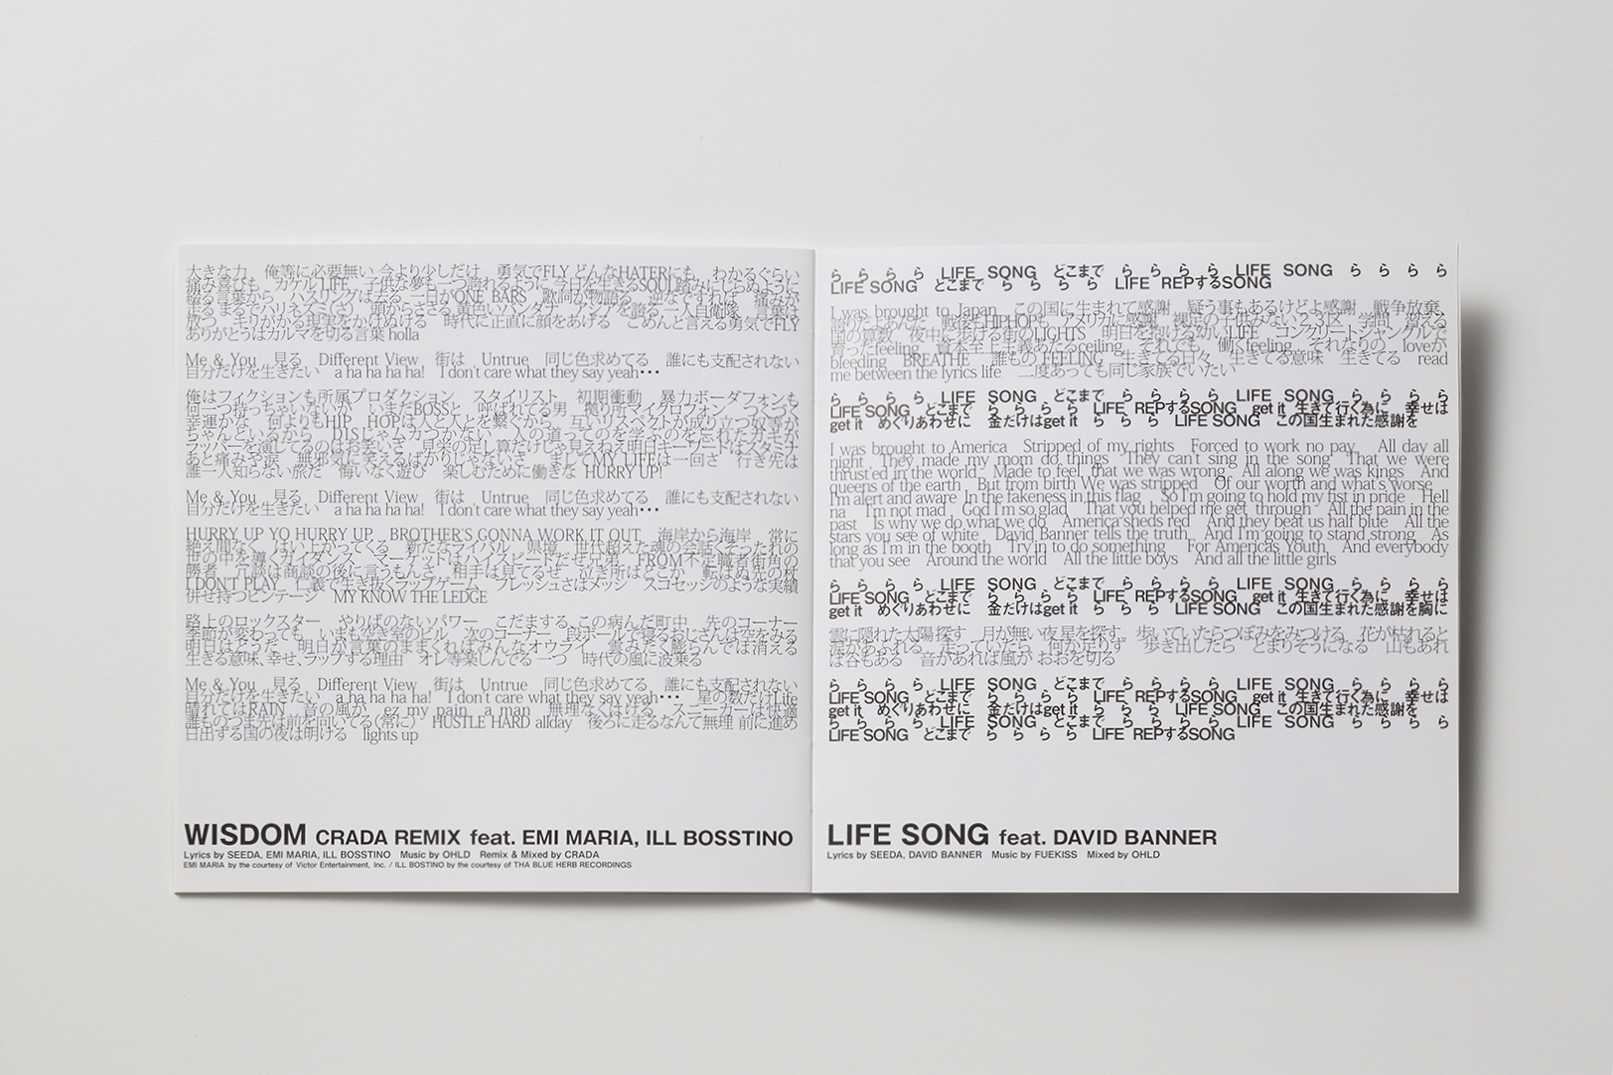 大きな力　俺等に必要無い 今より少しだけ　勇気でFLY どんなHATERにも　わかるぐらい
痛み喜びも　カゲルLIFE　子供な夢も一つ誇れるように 今日を生きるSOUL踏みにじらぬように
綴る言葉から　ハスリングは去る 一日がONE BARS　歌詞が物語る　逆なですれば　痛みが
走る まるでハリネズミ　頭からささる 黄色いバンダナ　アジアを誇る 一人自衛隊　言葉は
放つ　ギリかかる現実をかけぬける　時代に正直に顔をあげる　ごめんと言える勇気でFLY
ありがとうはカルマを切る言葉 holla
Me & You　見る　Different View　街は　Untrue　同じ色求めてる　誰にも支配されない
自分だけを生きたい　a ha ha ha ha!　I don't care what they say yeah･･･
俺はフィクションも所属プロダクション　スタイリスト　初期衝動　暴力ボーダフォンも
何一つ持っちゃいないが　いまだBOSSと　呼ばれてる男　拠り所マイクロフォン　つくづく
幸運かな　何よりもHIP　HOPは人と人とを繋ぐから　互いリスペクトが成り立つ奴等が
ちゃんといるから　DISじゃムカつかない
あと痛みや涙　無邪気に笑えるばかりじゃないさ　そしてMY LIFEは一回さ　行き先は
誰一人知らない旅だ　悔いなく遊び　楽しむために働きな　HURRY UP!
Me & You　見る　Different View　街は　Untrue　同じ色求めてる　誰にも支配されない
自分だけを生きたい　a ha ha ha ha!　I don't care what they say yeah･･･
HURRY UP YO HURRY UP　BROTHER'S GONNA WORK IT OUT　海岸から海岸　常に
絶え間なく　はい上がってくる　新たなライバル　県境　世代超えた魂の会話 くそったれの
世の中を導くガイダンス　マーケットよりハイスピードだぜ兄弟　FROM不定職者街角の
勝者　冗談は商談の後に言うもんさ　相手は見てるぜ　立ち所はどこか　転ばぬ先の杖
I DON'T PLAY　仁義で生き抜くラップゲーム　フレッシュさはメッシ　スコセッシのような実績
併せ持つビンテージ　MY KNOW THE LEDGE
路上のロックスター　やりばのないパワー　こだまする この病んだ町中　先のコーナー
季節が変わっても　いまも空き室のビル　次のコーナー　段ボールで寝るおじさんは空をみる
明日はどうだ　明日が言葉のままくればみんなオウライ　雲みたく膨らんでは消える
生きる意味、幸せ、ラップする理由　オレ等楽しんでる 一つ　時代の風に波乗る
Me & You　見る　Different View　街は　Untrue　同じ色求めてる　誰にも支配されない
自分だけを生きたい　a ha ha ha ha!　I don't care what they say yeah･･･　星の数だけLife
晴れてはRAIN　音の風が　ez my pain　a man　無理なくはける　スニーカーは快適
誰ものつま先は前を向いてる（常に）　HUSTLE HARD allday　後ろに走るなんて無理 前に進め
日出する国の夜は明ける　lights up
WISDOM CRADA REMIX feat. EMI MARIA, ILL BOSSTINO
Lyrics by SEEDA, EMI MARIA, ILL BOSSTINO　Music by OHLD　Remix & Mixed by CRADA
EMI MARIA by the courtesy of Victor Entertainment, Inc. / ILL BOSTINO by the courtesy of THA BLUE HERB RECORDINGS
ら　ら　ら　ら　LIFE　SONG　どこまで　ら　ら　ら　ら　LIFE　SONG　ら　ら　ら　ら
LIFE SONG　どこまで　ら　ら　ら　ら　LIFE　REPするSONG
I was brought to Japan　この国に生まれて感謝　疑う事もあるけどよ感謝　戦争放棄、
誇りだあんた　戦後もHIPHOPS　アメリカに感謝　裸足の子供みないっつう区　学問　燃える
国の算数　夜中に歩ける街のLIGHTS　明日を投げる幼いLIFE　コンクリートジャングルで
育ったfeeling　資本至上主義あたるceiling　それでも　働くfeeling　それなりの　loveが
bleeding　BREATHE　誰もの FEELING　生きてる日々　生きてる意味　生きてる　read
me between the lyrics life　二度あっても同じ家族でいたい
ら　ら　ら　ら　LIFE　SONG　どこまで　ら　ら　ら　ら　LIFE　SONG　ら　ら　ら　ら
LIFE SONG　どこまで　ら　ら　ら　ら　LIFE　REPするSONG　get it　生きて行く為に　幸せは
get it　めぐりあわせに　金だけはget it　ら　ら　ら　LIFE SONG　この国生まれた感謝を
I was brought to America　Stripped of my rights　Forced to work no pay　All day all
night　They made my mom do things　They can't sing in the song　That we were
thrusted in the world　Made to feel that we was wrong　All along we was kings　And
queens of the earth　But from birth We was stripped　Of our worth and what's worse
I'm alert and aware In the fakeness in this flag　So I'm going to hold my fist in pride　Hell
na　I'm not mad　God I'm so glad　That you helped me get through　All the pain in the
past　Is why we do what we do　America sheds red　And they beat us half blue　All the
stars you see of white　David Banner tells the truth　And I'm going to stand strong　As
long as I'm in the booth　Tryin to do something　For Americas Youth　And everybody
that you see　Around the world　All the little boys　And all the little girls
ら　ら　ら　ら　LIFE　SONG　どこまで　ら　ら　ら　ら　LIFE　SONG　ら　ら　ら　ら
LIFE SONG　どこまで　ら　ら　ら　ら　LIFE　REPするSONG　get it　生きて行く為に　幸せは
get it　めぐりあわせに　金だけはget it　ら　ら　ら　LIFE SONG　この国生まれた感謝を胸に
雲に隠れた太陽探す　月が無い夜星を探す　歩いていたらつぼみをみつける　花が枯れると
涙があふれる　走っていたら　何か足りず　歩き出したら　とまりそうになる　山もあれ
ば谷もある　音があれば風が おおを切る
ら　ら　ら　ら　LIFE　SONG　どこまで　ら　ら　ら　ら　LIFE　SONG　ら　ら　ら　ら
LIFE SONG　どこまで　ら　ら　ら　ら　LIFE　REPするSONG　get it　生きて行く為に　幸せは
get it　めぐりあわせに　金だけはget it　ら　ら　ら　LIFE SONG　この国生まれた感謝を
ら　ら　ら　ら　LIFE　SONG　どこまで　ら　ら　ら　ら　LIFE　SONG　ら　ら　ら　ら
LIFE SONG　どこまで　ら　ら　ら　ら　LIFE　REPするSONG
LIFE SONG feat. DAVID BANNER
Lyrics by SEEDA, DAVID BANNER　Music by FUEKISS　Mixed by OHLD